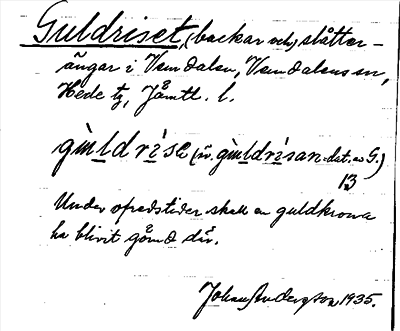 Guldriset, (backar och) slåtter-
ängar i Vemdalen, Vemdalens sn,
Hede tg, Jämtl. l.
gùldrìse (in gùldrìsan dat. G.)
13
Under ofredstider skall en guldkrona
ha blivit gömd där.
Johan Andersson 1935.